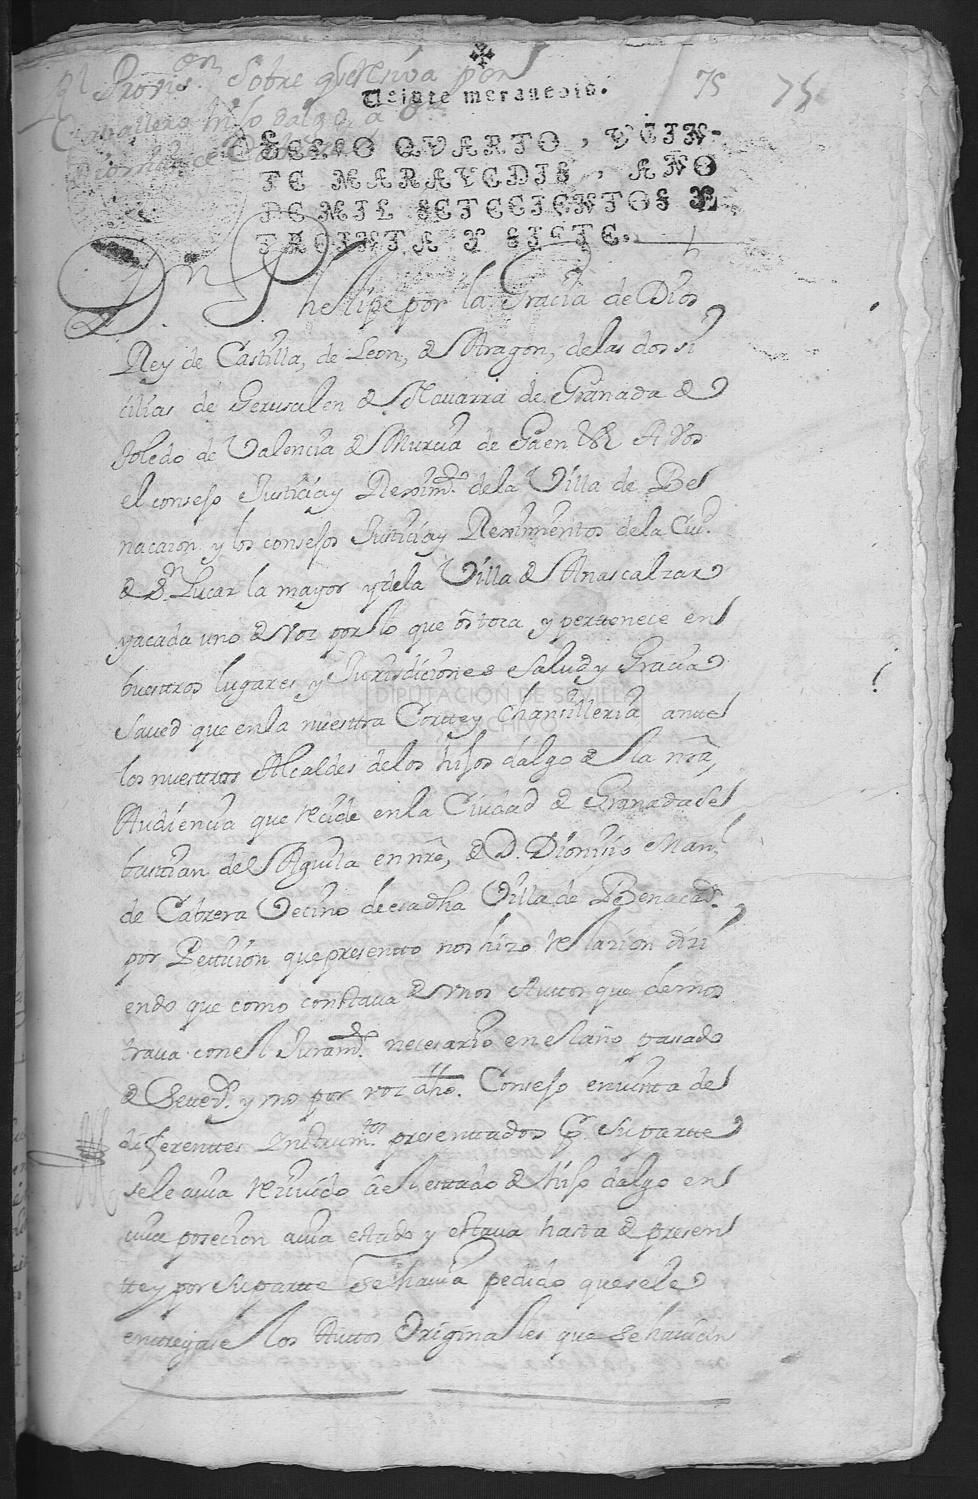 Rl Provisen sobre q se reciva por
75 75
Cavallero hijo dalgo, a Dn
Veinte maravedis.
SELLO QVARTO, VEIN-
TE MARAVEDIS, AÑO
DE MIL SETECIENTOS Y
TREINTA Y SIETE.
Dn. Phelipe por la Gracia de Dios
Rey de Castilla, de Leon, de Aragon, de las dos si
cilias de Gerusalen de Navarra de Granada de
Toledo de Valencia de Murcia de Gaen &c A Vos
el consejo Justicia y Reximto. de la Villa de Be
nacazon y los consejos Justicia y Reximientos de la Ciu.
de Sn. Lucar la mayor y de la Villa de Anascalzar
y a cada uno de vos por lo que os toca y pertenece en
buestros lugares y Jurisdiciones salud y Gracia
Saued que en la nuestra Cortte y Chansilleria antte
los nuestros Alcaldes de los hijos dalgo de la nra,
Audiencia que recide en la Ciudad de Granada Se
bastian del Aguila en nre, de D. Dionisio Man,
de Cabrera Vecino de esa dha Villa de Benacaz.
por Petticion que presentto nos hizo relacion dizi
endo que como constava de unos Auttos que demos
trava con el Juramto. necesario en el año pasado
de Setteds. y uno por voz dho. Consejo en vista de
diferenttes Instrumtos presenttados Pr. su partte
se le avia recivido al estado de hijo dalgo en
cuia posecion avia estado y estava hasta de presen
tte y por su partte se havia pedido que se le
enttregase los Auttos Originales que se havian
DIPUTACIÓN DE SEVILLA
ARCHIVO